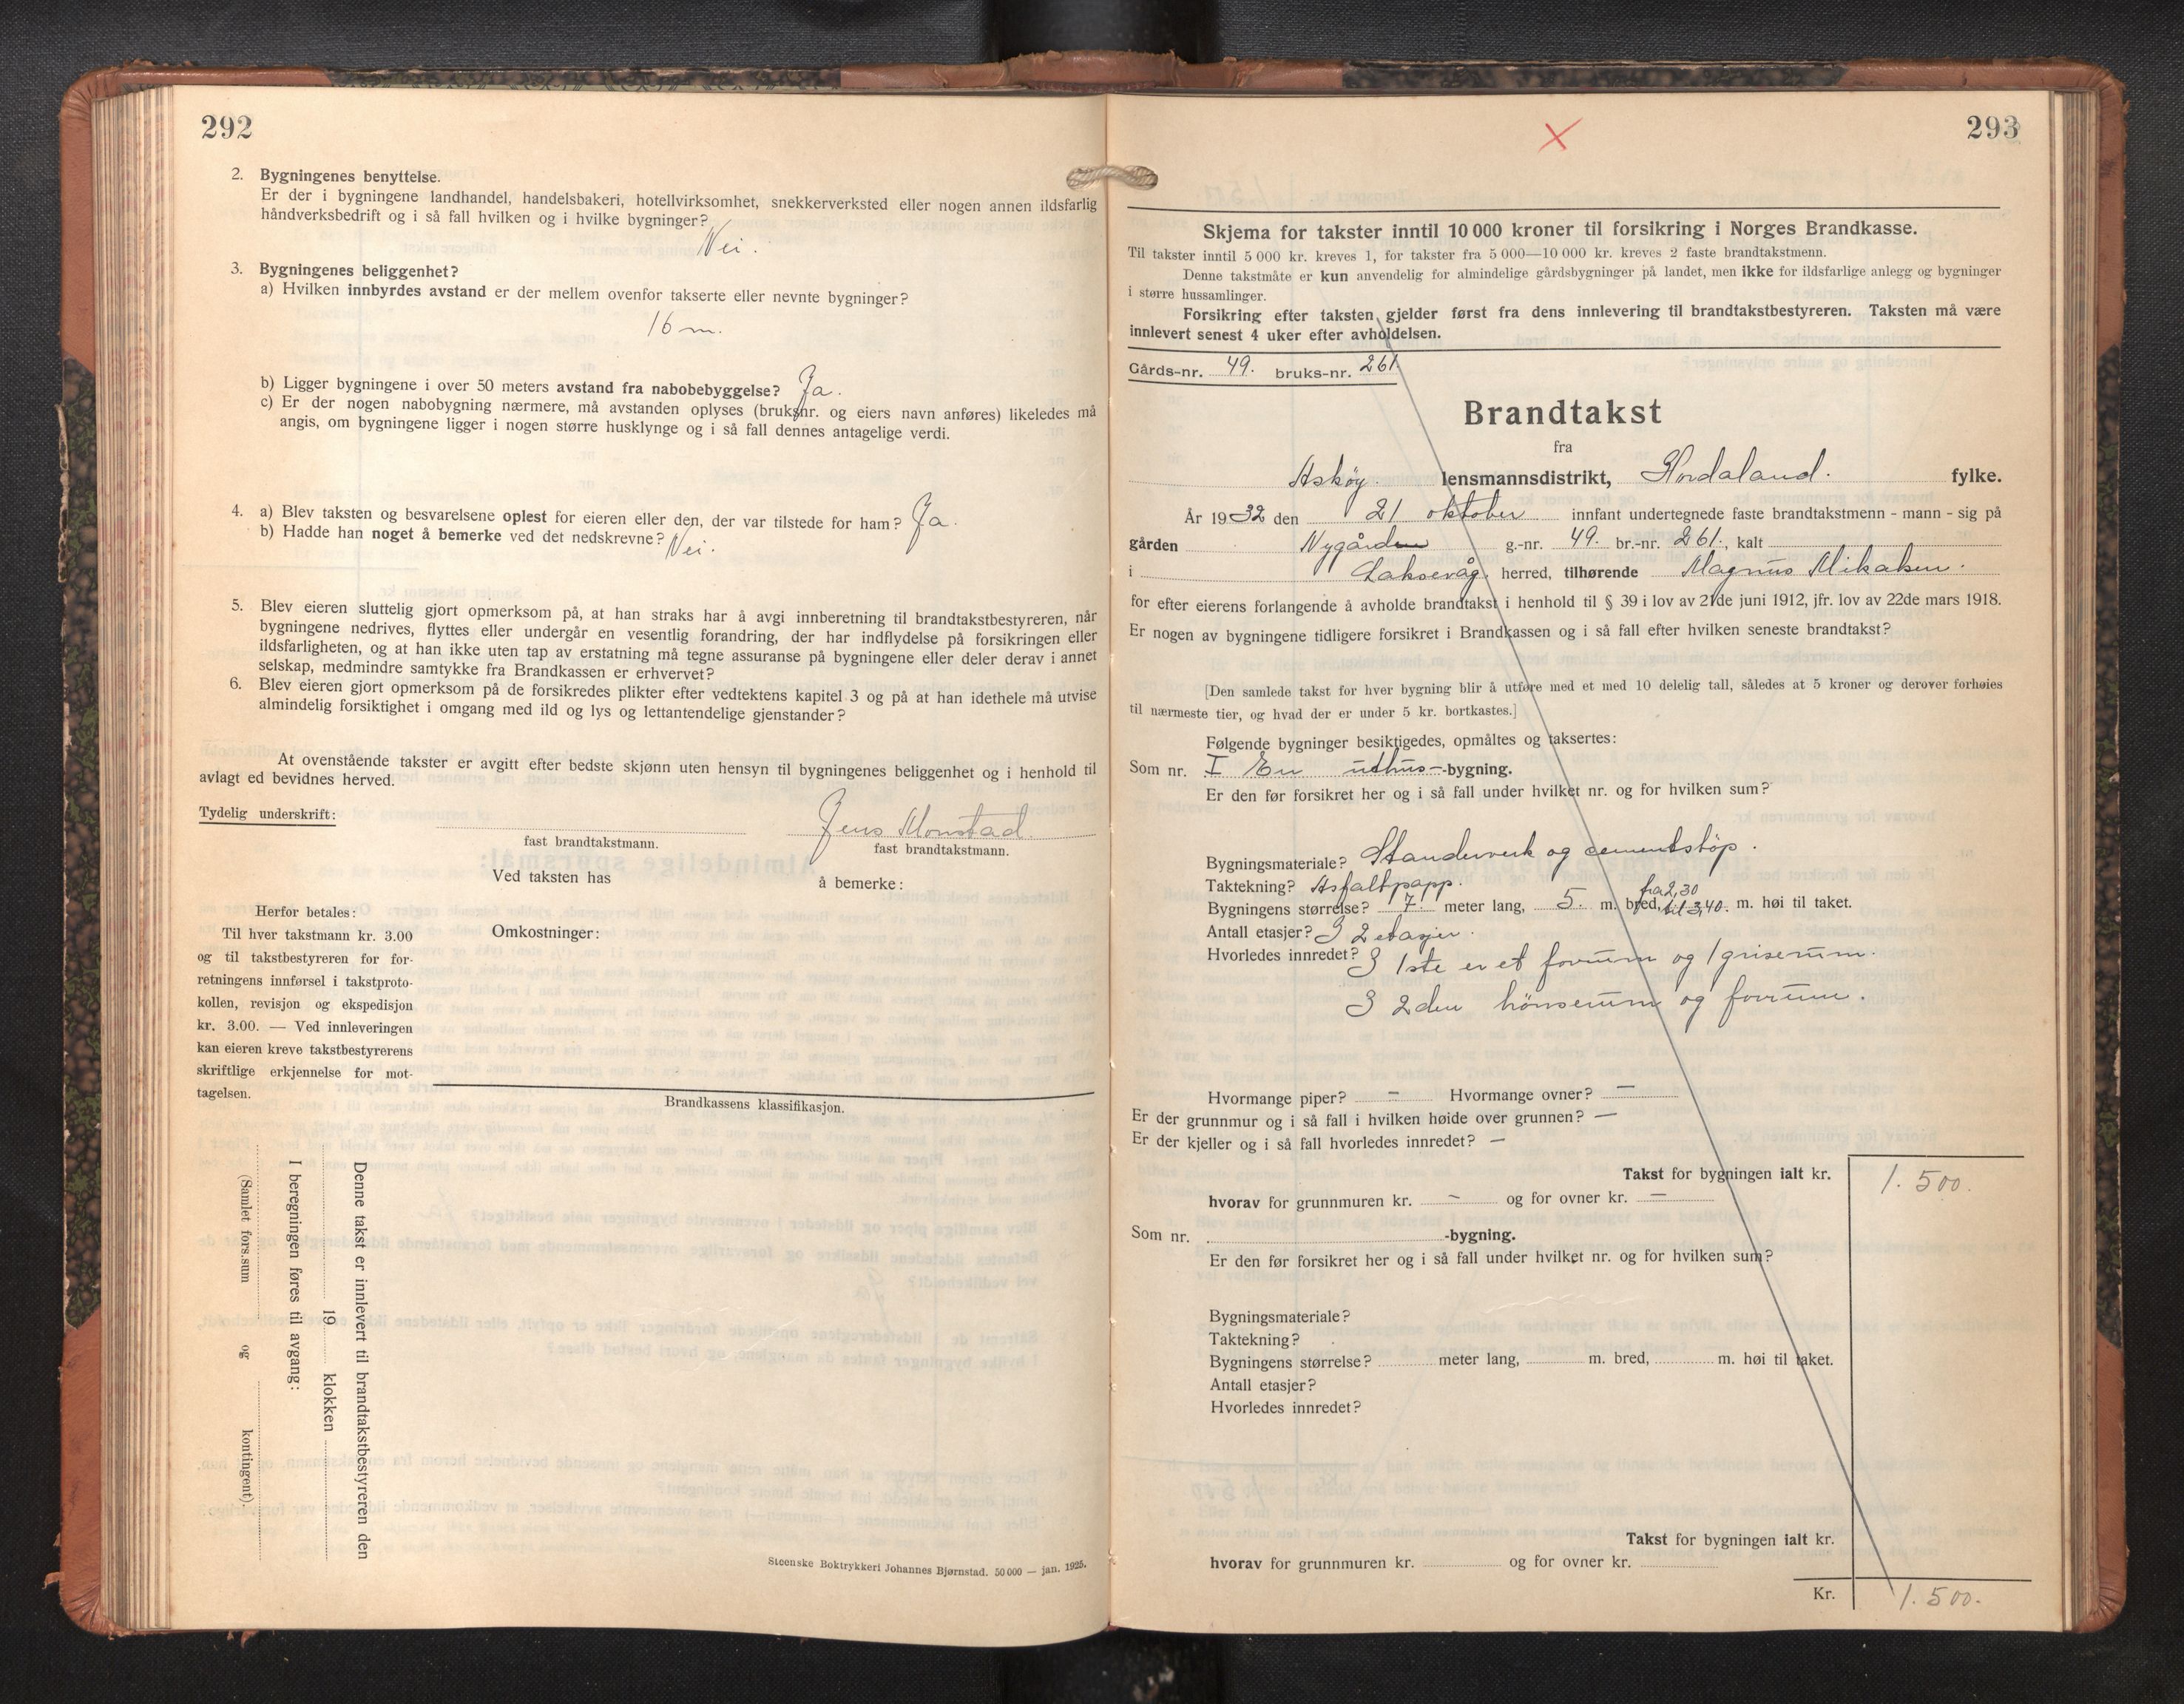 292
2. Bygningenes benyttelse.
Er der i bygningene landhandel, handelsbakeri, hotellvirksomhet, snekkerverksted eller nogen annen ildsfarlig
håndverksbedrift og i så fall hvilken og i hvilke bygninger?
Nei.
3. Bygningenes beliggenhet?
a) Hvilken innbyrdes avstand er der mellem ovenfor takserte eller nevnte bygninger?
16 m.
b) Ligger bygningene i over 50 meters avstand fra nabobebyggelse? Ja.
c) Er der nogen nabobygning nærmere, må avstanden oplyses (bruksnr. og eiers navn anføres) likeledes må
angis, om bygningene ligger i nogen større husklynge og i så fall dennes antagelige verdi.
4. a) Blev taksten og besvarelsene oplest for eieren eller den, der var tilstede for ham? Ja.
b) Hadde han noget å bemerke ved det nedskrevne? Nei.
5. Blev eieren sluttelig gjort opmerksom på, at han straks har å avgi innberetning til brandtakstbestyreren, når
bygningene nedrives, flyttes eller undergår en vesentlig forandring, der har indflydelse på forsikringen eller
ildsfarligheten, og at han ikke uten tap av erstatning må tegne assuranse på bygningene eller deler derav i annet
selskap, medmindre samtykke fra Brandkassen er erhvervet?
6. Blev eieren gjort opmerksom på de forsikredes plikter efter vedtektens kapitel 3 og på at han idethele må utvise
almindelig forsiktighet i omgang med ild og lys og lettantendelige gjenstander?
At ovenstående takster er avgitt efter bedste skjønn uten hensyn til bygningenes beliggenhet og i henhold til
avlagt ed bevidnes herved.
Tydelig underskrift:
Jens Monstad
fast brandtakstmann. fast brandtakstmann.
Ved taksten has å bemerke:
Herfor betales:
Til hver takstmann kr. 3.00
og til takstbestyreren for for-
retningens innførsel i takstproto-
kollen, revisjon og ekspedisjon
kr. 3.00. — Ved innleveringen
kan eieren kreve takstbestyrerens
skriftlige erkjennelse for mot-
tagelsen.
Omkostninger:
Brandkassens klassifikasjon.
Denne takst er innlevert til brandtakstbestyreren den
19 klokken
I beregningen føres til avgang:
(Samlet fors.sum og kontingent)
Steenske Boktrykkeri Johannes Bjørnstad. 50 000 — jan. 1925.
293
Skjema for takster inntil 10 000 kroner til forsikring i Norges Brandkasse.
Til takster inntil 5 000 kr. kreves 1, for takster fra 5 000—10 000 kr. kreves 2 faste brandtakstmenn.
Denne takstmåte er kun anvendelig for almindelige gårdsbygninger på landet, men ikke for ildsfarlige anlegg og bygninger
i større hussamlinger.
Forsikring efter taksten gjelder først fra dens innlevering til brandtakstbestyreren. Taksten må være
innlevert senest 4 uker efter avholdelsen.
Gårds-nr. 49. bruks-nr. 261.
Brandtakst
fra
Askøy. lensmannsdistrikt, Hordaland. fylke.
År 1932 den 21 oktober innfant undertegnede faste brandtakstmenn - mann - sig på
gården Nygården g.-nr. 49. br.-nr. 261., kalt
i Laksevåg. herred, tilhørende Magnus Mikalsen.
for efter eierens forlangende å avholde brandtakst i henhold til § 39 i lov av 21de juni 1912, jfr. lov av 22de mars 1918.
Er nogen av bygningene tidligere forsikret i Brandkassen og i så fall efter hvilken seneste brandtakst?
[Den samlede takst for hver bygning blir å utføre med et med 10 delelig tall, således at 5 kroner og derover forhøies
til nærmeste tier, og hvad der er under 5 kr. bortkastes.]
Følgende bygninger besiktigedes, opmåltes og taksertes:
Som nr. I En uthus-bygning.
Er den før forsikret her og i så fall under hvilket nr. og for hvilken sum?
Bygningsmateriale? Standerverk og cementstöp.
Taktekning? Asfaltpapp.
Bygningens størrelse? 7. meter lang, 5. m. bred, fra 2,30 til 3,40. m. høi til taket.
Antall etasjer? I 2 etasjer.
Hvorledes innredet? I 1ste er et forrum og 1 griserum.
I 2den hönserum og forrum.
Hvormange piper? — Hvormange ovner? —
Er der grunnmur og i så fall i hvilken høide over grunnen? —
Er der kjeller og i så fall hvorledes innredet? —
Takst for bygningen ialt kr. 1.500.
hvorav for grunnmuren kr. — og for ovner kr. —
Som nr. -bygning.
Er den før forsikret her og i så fall under hvilket nr. og for hvilken sum?
Bygningsmateriale?
Taktekning?
Bygningens størrelse? meter lang, m. bred, m. høi til taket.
Antall etasjer?
Hvorledes innredet?
Takst for bygningen ialt kr.
hvorav for grunnmuren kr. og for ovner kr.
Kr. 1.500.